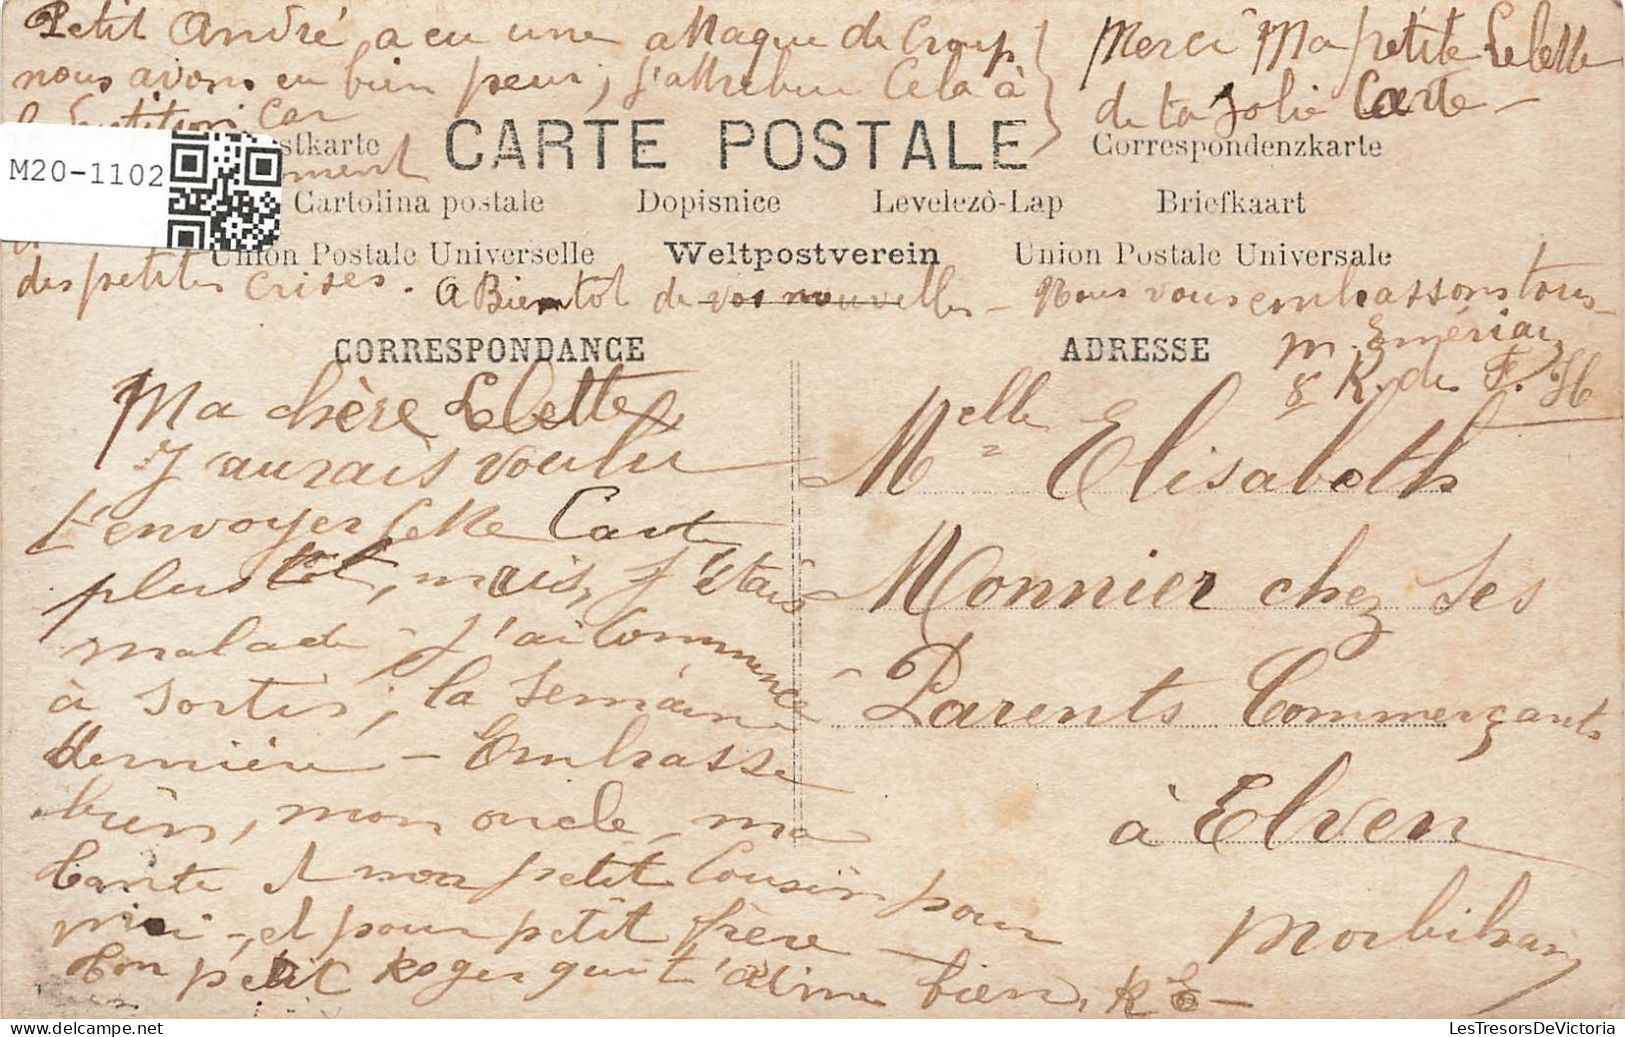 Petit André, a eu une attaque de Croup
nous avons eu bien peur, j'attribue Cela à
la Dentition Car
M20-1102
des petites crises. A Bientôt de vos nouvelles – Nous vous embrassons tous –
Merci Ma petite Lelette
de ta Jolie Carte –
CARTE POSTALE
stkarte
Correspondenzkarte
Cartolina postale Dopisnice Levelezò-Lap Briefkaart
Union Postale Universelle Weltpostverein Union Postale Universale
CORRESPONDANCE
ADRESSE
m. Emériau
8 R. de F. H
Ma chère Lelette
J'aurais voulu
t'envoyer cette Carte
plus tôt, mais, j'étais
malade – j'ai commencé
à sortir, la semaine
dernière – Embrasse
bien, mon oncle, ma
tante et mon petit Cousin pour
moi –, et pour petit frère –
ton p'tit Roger qui t'aime bien. R E –
Melle Elisabeth
Monnier chez Ses
Parents Commerçants
à Elven
Morbihan
LesTresorsDeVictoria